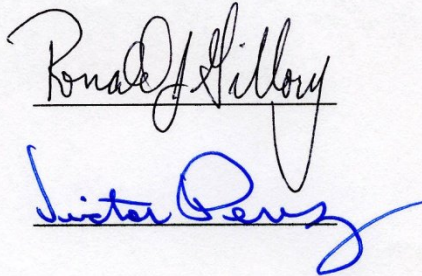 Ronald J Gillory
Victor Perez